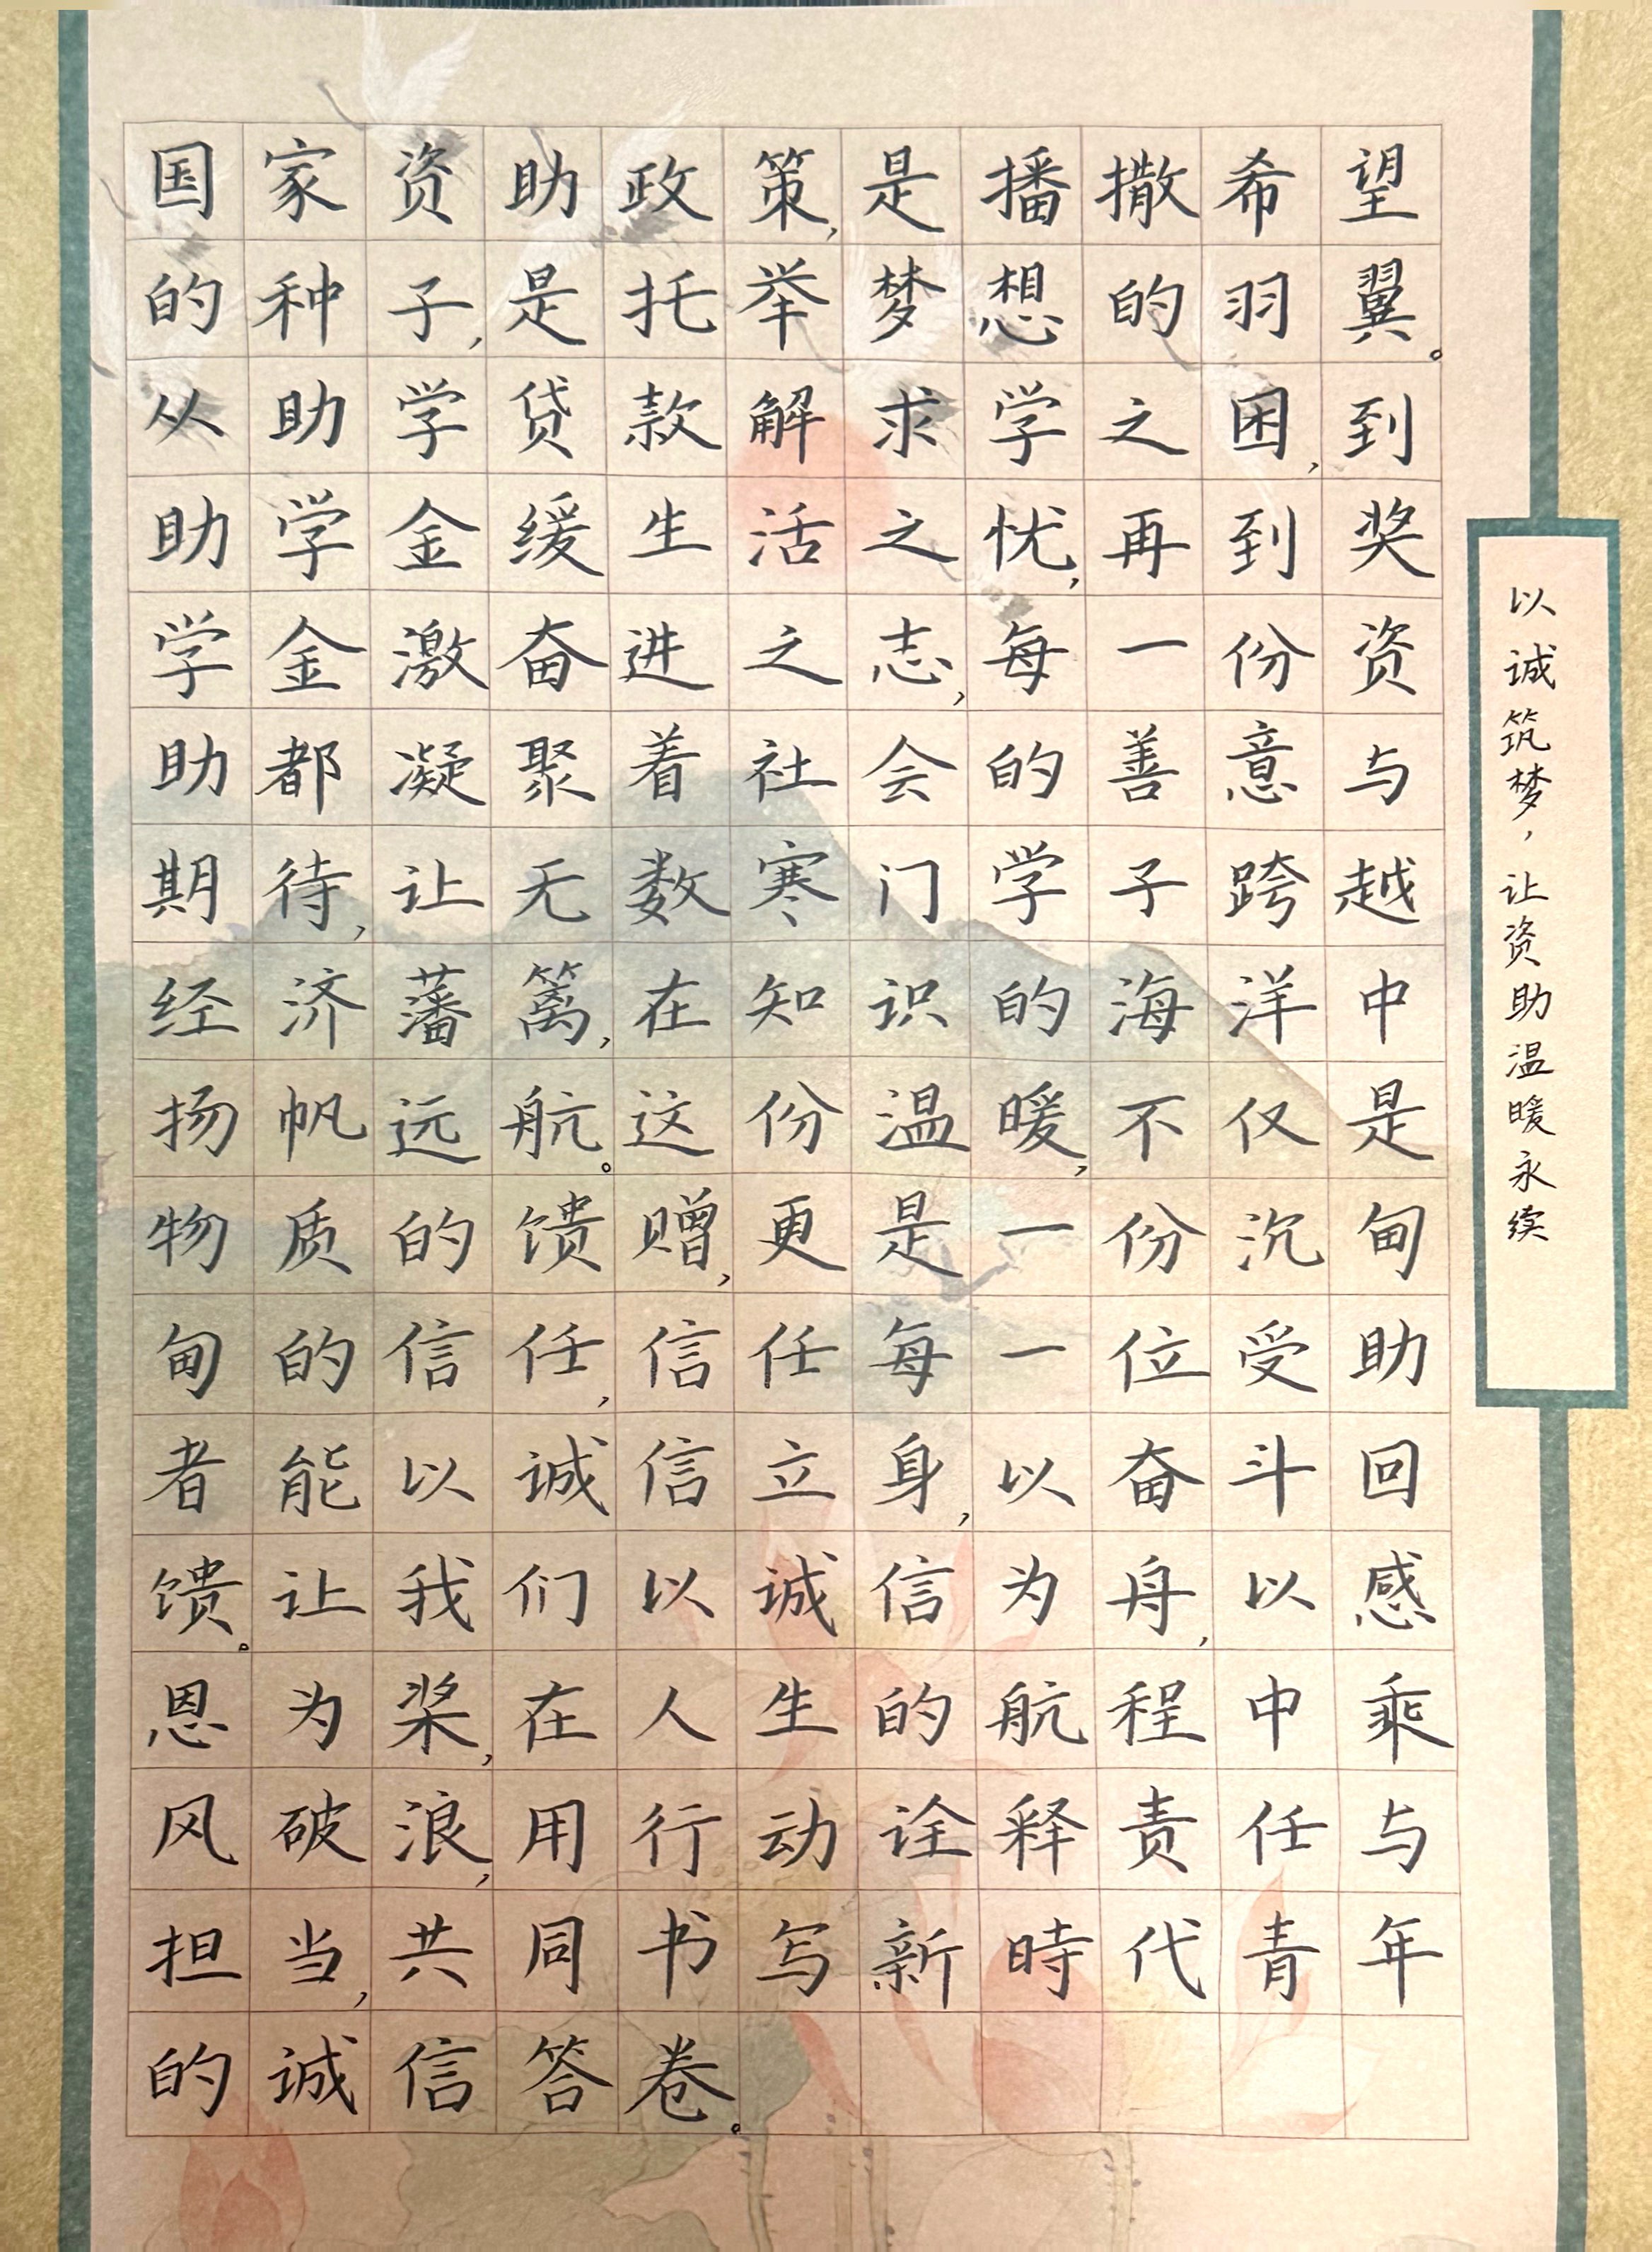 国家资助政策,是播撒希望
的种子,是托举梦想的羽翼。
从助学贷款解求学之困,到
助学金缓生活之忧,再到奖
学金激奋进之志,每一份资
助都凝聚着社会的善意与
期待,让无数寒门学子跨越
经济藩篱,在知识的海洋中
扬帆远航。这份温暖,不仅是
物质的馈赠,更是一份沉甸
甸的信任,信任每一位受助
者能以诚信立身,以奋斗回
馈。让我们以诚信为舟,以感
恩为桨,在人生的航程中乘
风破浪,用行动诠释责任与
担当,共同书写新時代青年
的诚信答卷。
以诚筑梦,让资助温暖永续